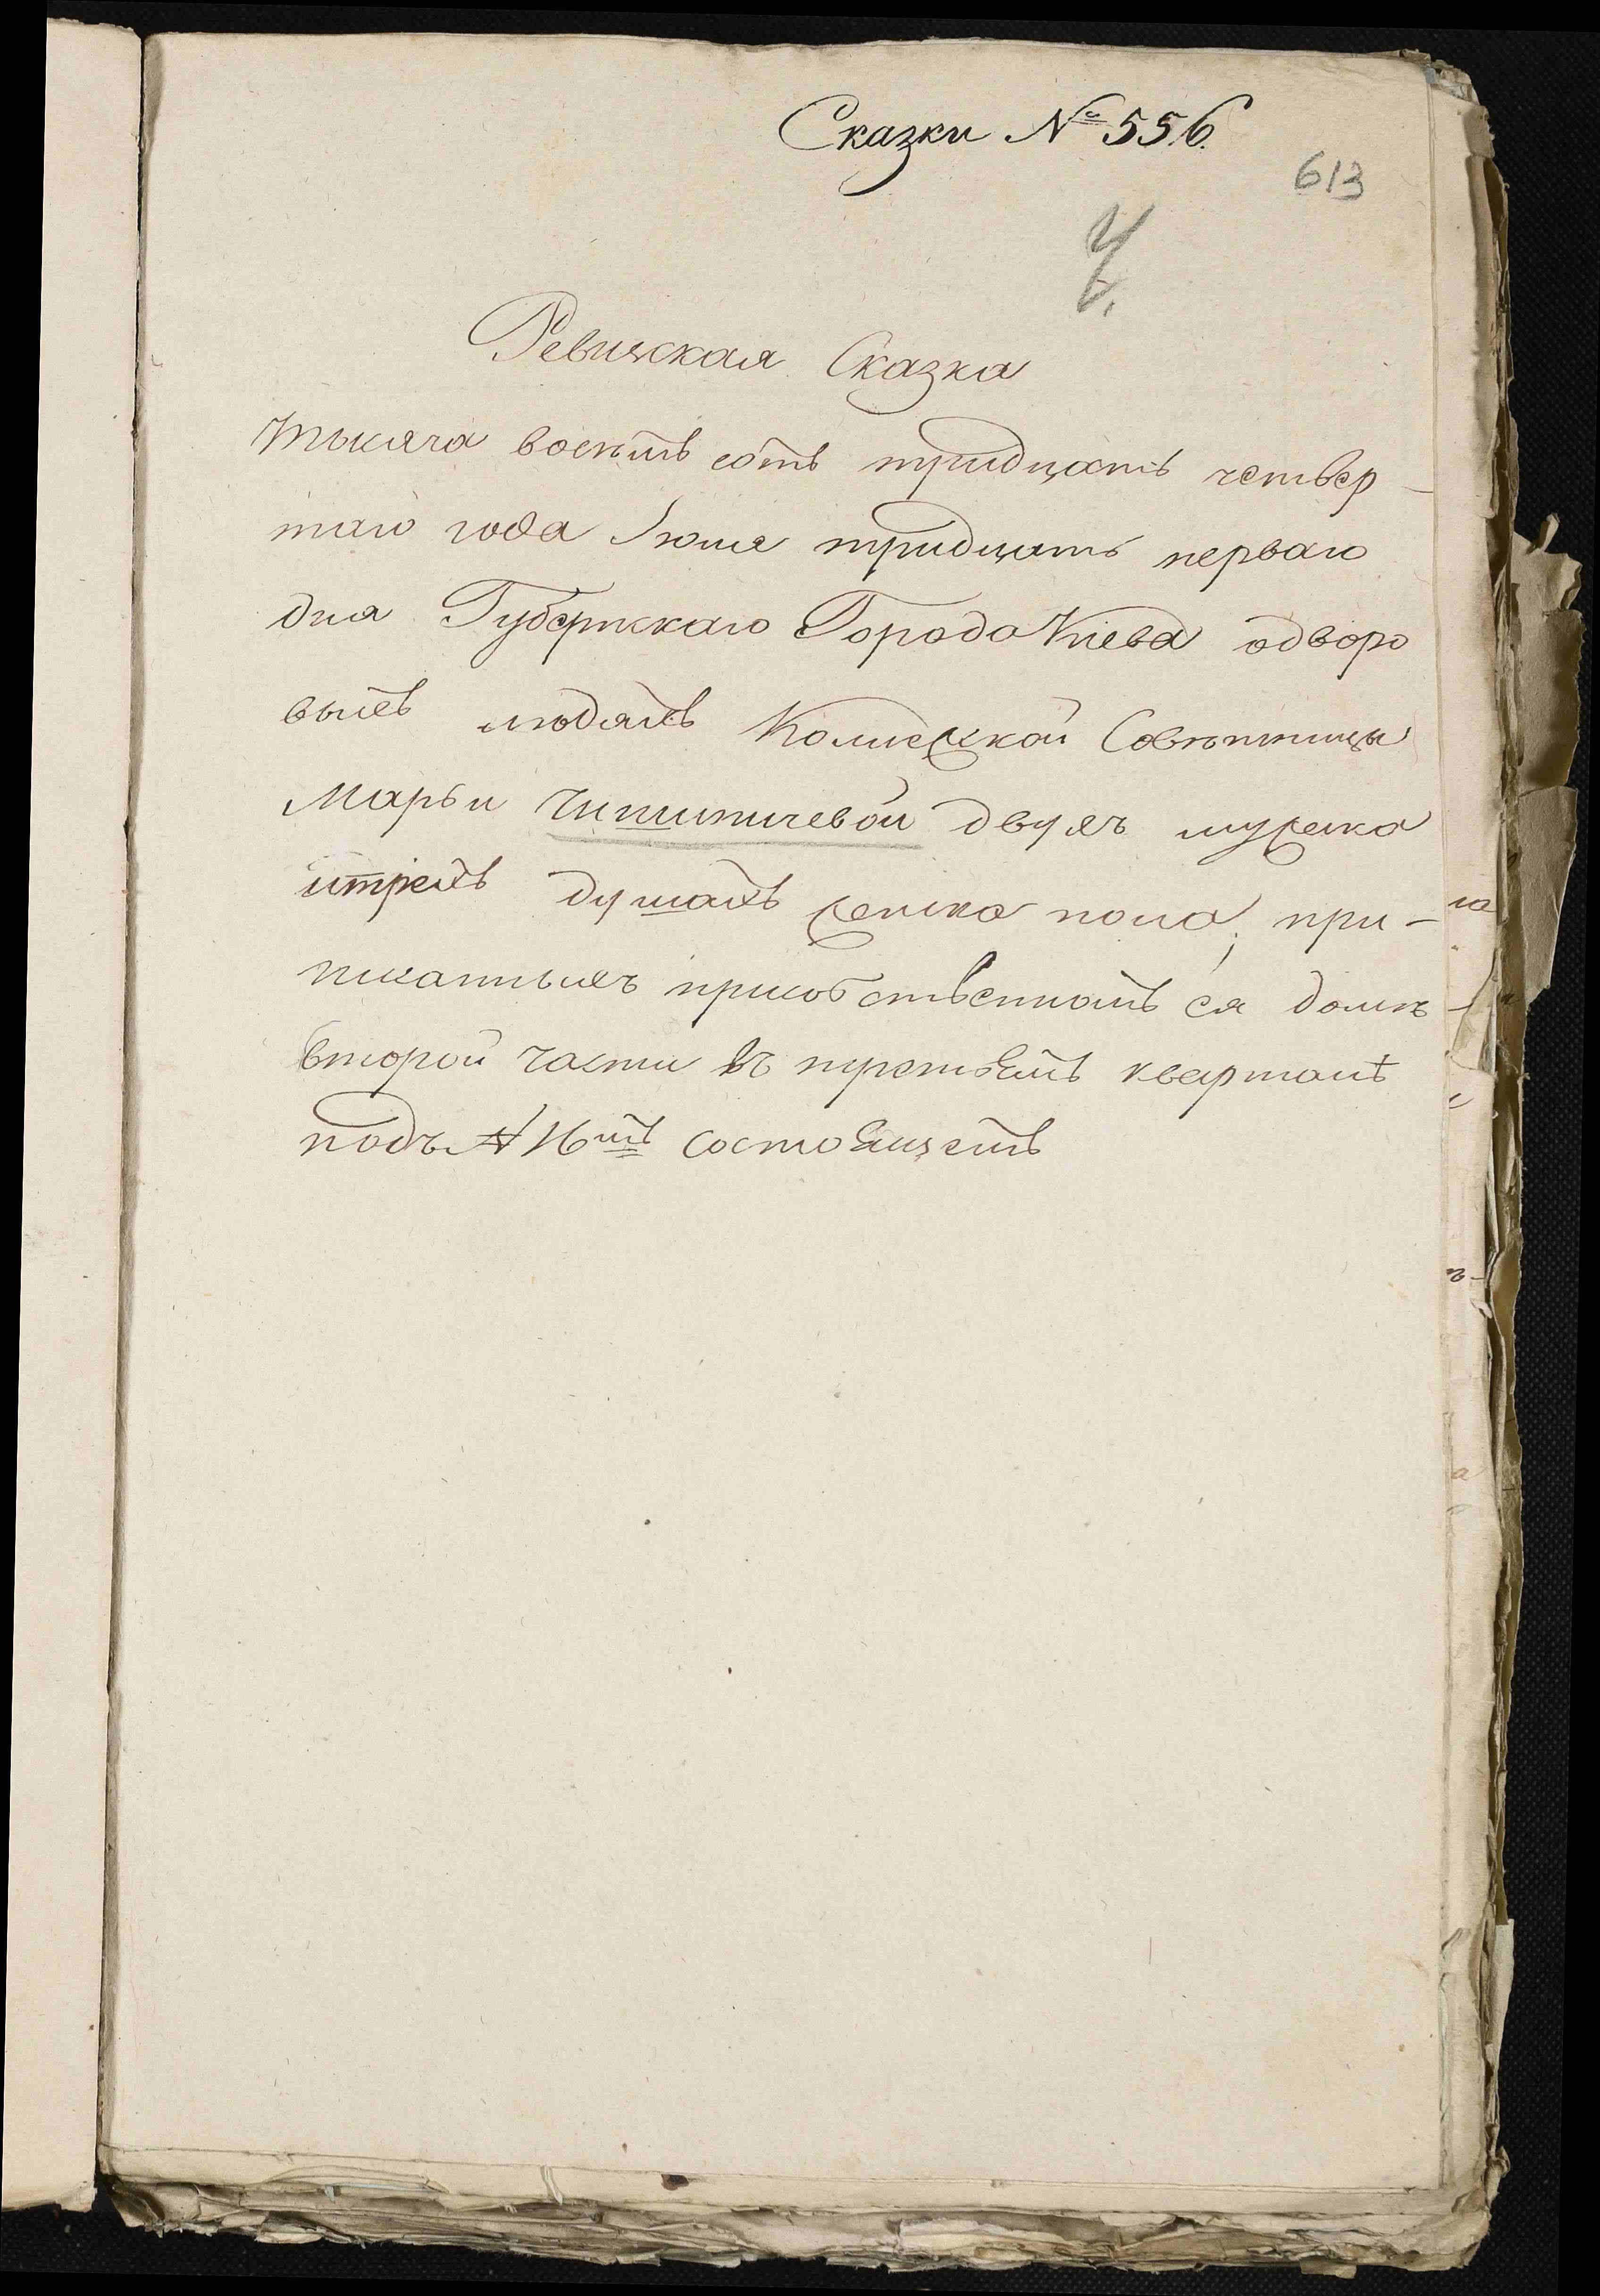 Сказки № 556.
613
Ч.
Ревизская Сказка
тысяча восемъ сотъ тридцать четвер-
таго года Іюля тридцать перваго
дня Губернскаго Города Кіева одворо
выхъ людяхъ Колежской Совѣтницы
Марьи двухъ мужска
итрехъ душахъ женска пола; при-
писанныхъ присобственномъ ея домѣ
второй части въ третьемъ кварталѣ
подъ № 16мъ состоящемъ